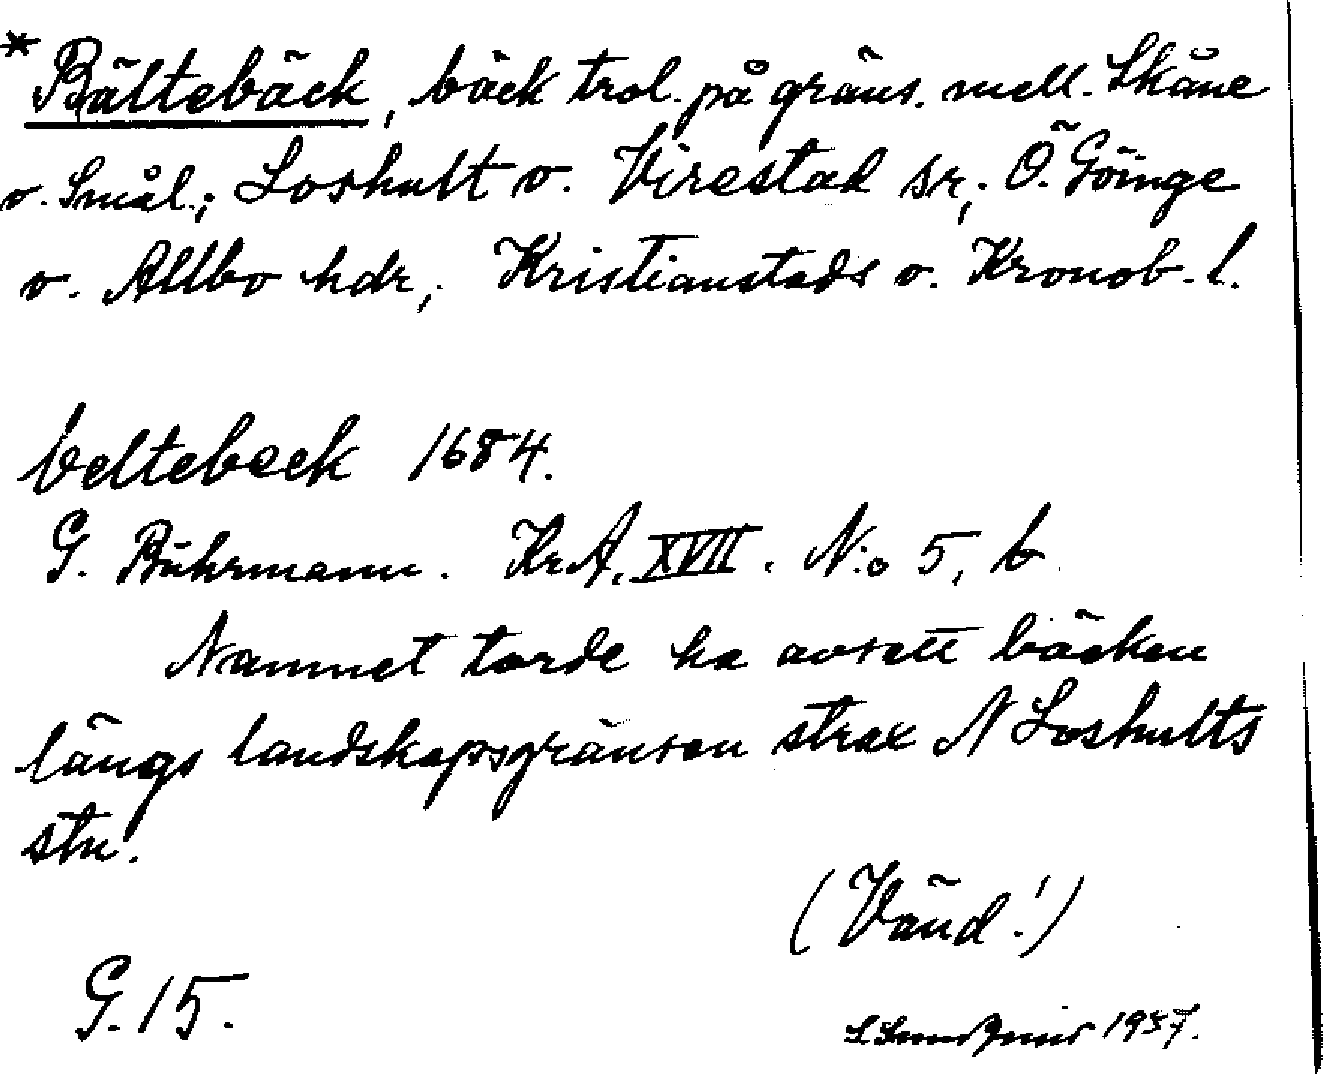 * Bältebäck, bäck trol. på gräns. mell. Skåne
o. Smål.; Loshult o. Virestad sr; Ö. Göinge
o. Allbo hdr; Kristianstads o. Kronob. l.
beltebeck 1684.
G. Buhrmann. KrA. XVII. N:o 5, b
Namnet torde ha avsett bäcken
längs landskapsgränsen strax N Loshults
stn.
(Vänd!)
G. 15.
1937.